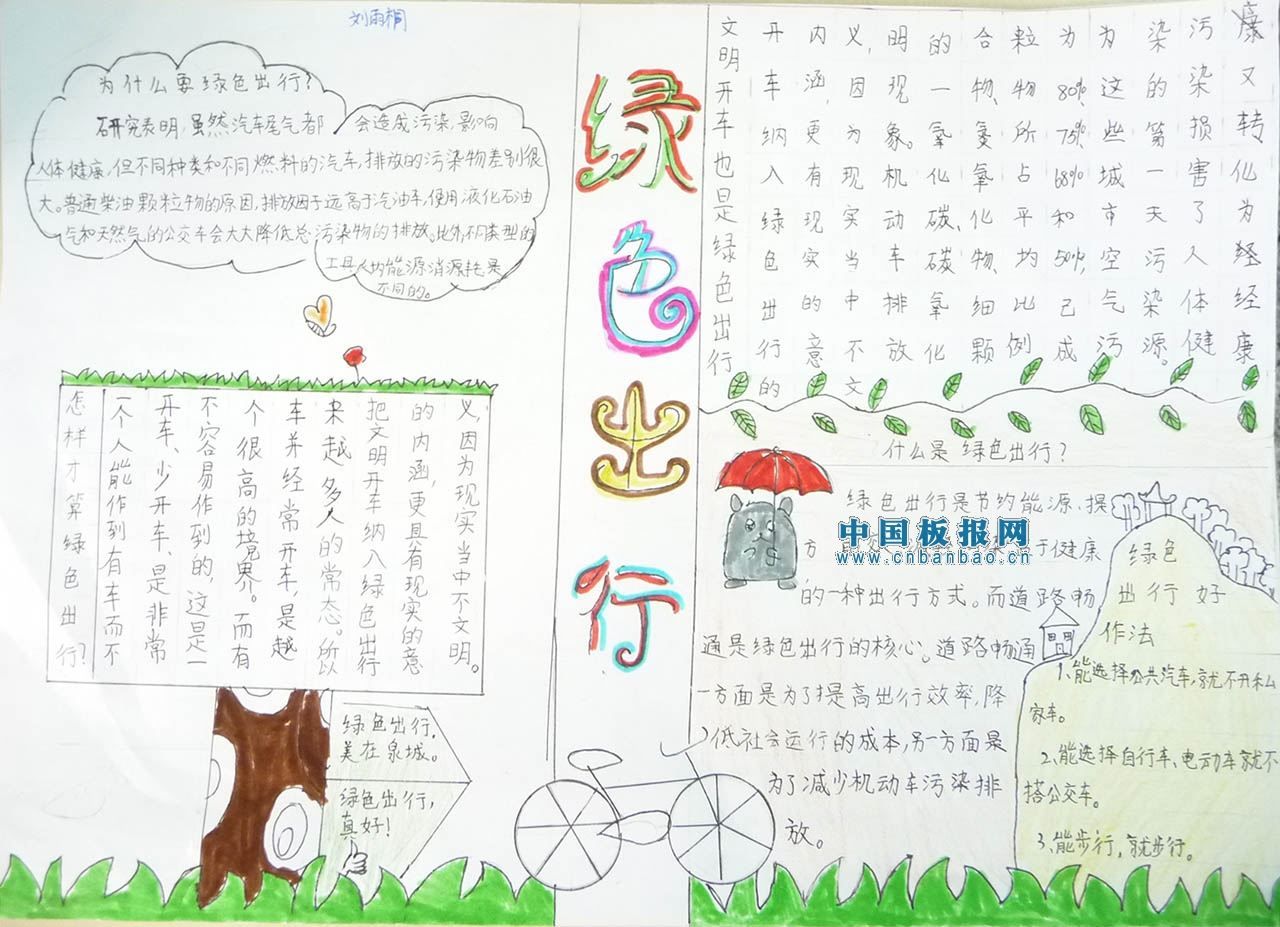 刘雨桐
为什么要绿色出行?
研究表明,虽然汽车尾气都会造成污染,影响
人体健康,但不同种类和不同燃料的汽车,排放的污染物差别很
大。普通柴油颗粒物的原因,排放因子远高于汽油车,使用液化石油
气和天然气的公交车会大大降低总污染物的排放。此外,不同类型的
工具人均能源消源耗是
不同的。
绿色出行
文明开车也是绿色出行
开车纳入绿色出行的
内涵,更有现实的意
义,因为现实当中不文
明现象。机动车排放
的一氧化碳、碳氧化
合物、氮氧化物、细颗
粒物所占平均比例
为80%75%68%和50%,已成
为这些城市空气污
染的第一天污染源。
污染损害了人体健
康又转化为经经康
怎样才算绿色出行?
一个人能作到有车而不
开车、少开车、是非常
不容易作到的,这是一
个很高的境界。而有
车并经常开车,是越
来越多人的常态。所以
把文明开车纳入绿色出行
的内涵,更且有现实的意
义,因为现实当中不文明。
绿色出行,
美在泉城。
绿色出行,
真好!
什么是绿色出行?
绿色出行是节约能源、提
方
于健康
的一种出行方式。而道路畅
通是绿色出行的核心。道路畅通
一方面是为了提高出行效率,降
低社会运行的成本,另一方面是
为了减少机动车污染排
放。
中国板报网
www.cnbanbao.cn
绿色
出行好
作法
1、能选择公共汽车,就不开私
家车。
2、能选择自行车、电动车就不
搭公交车。
3、能步行,就步行。